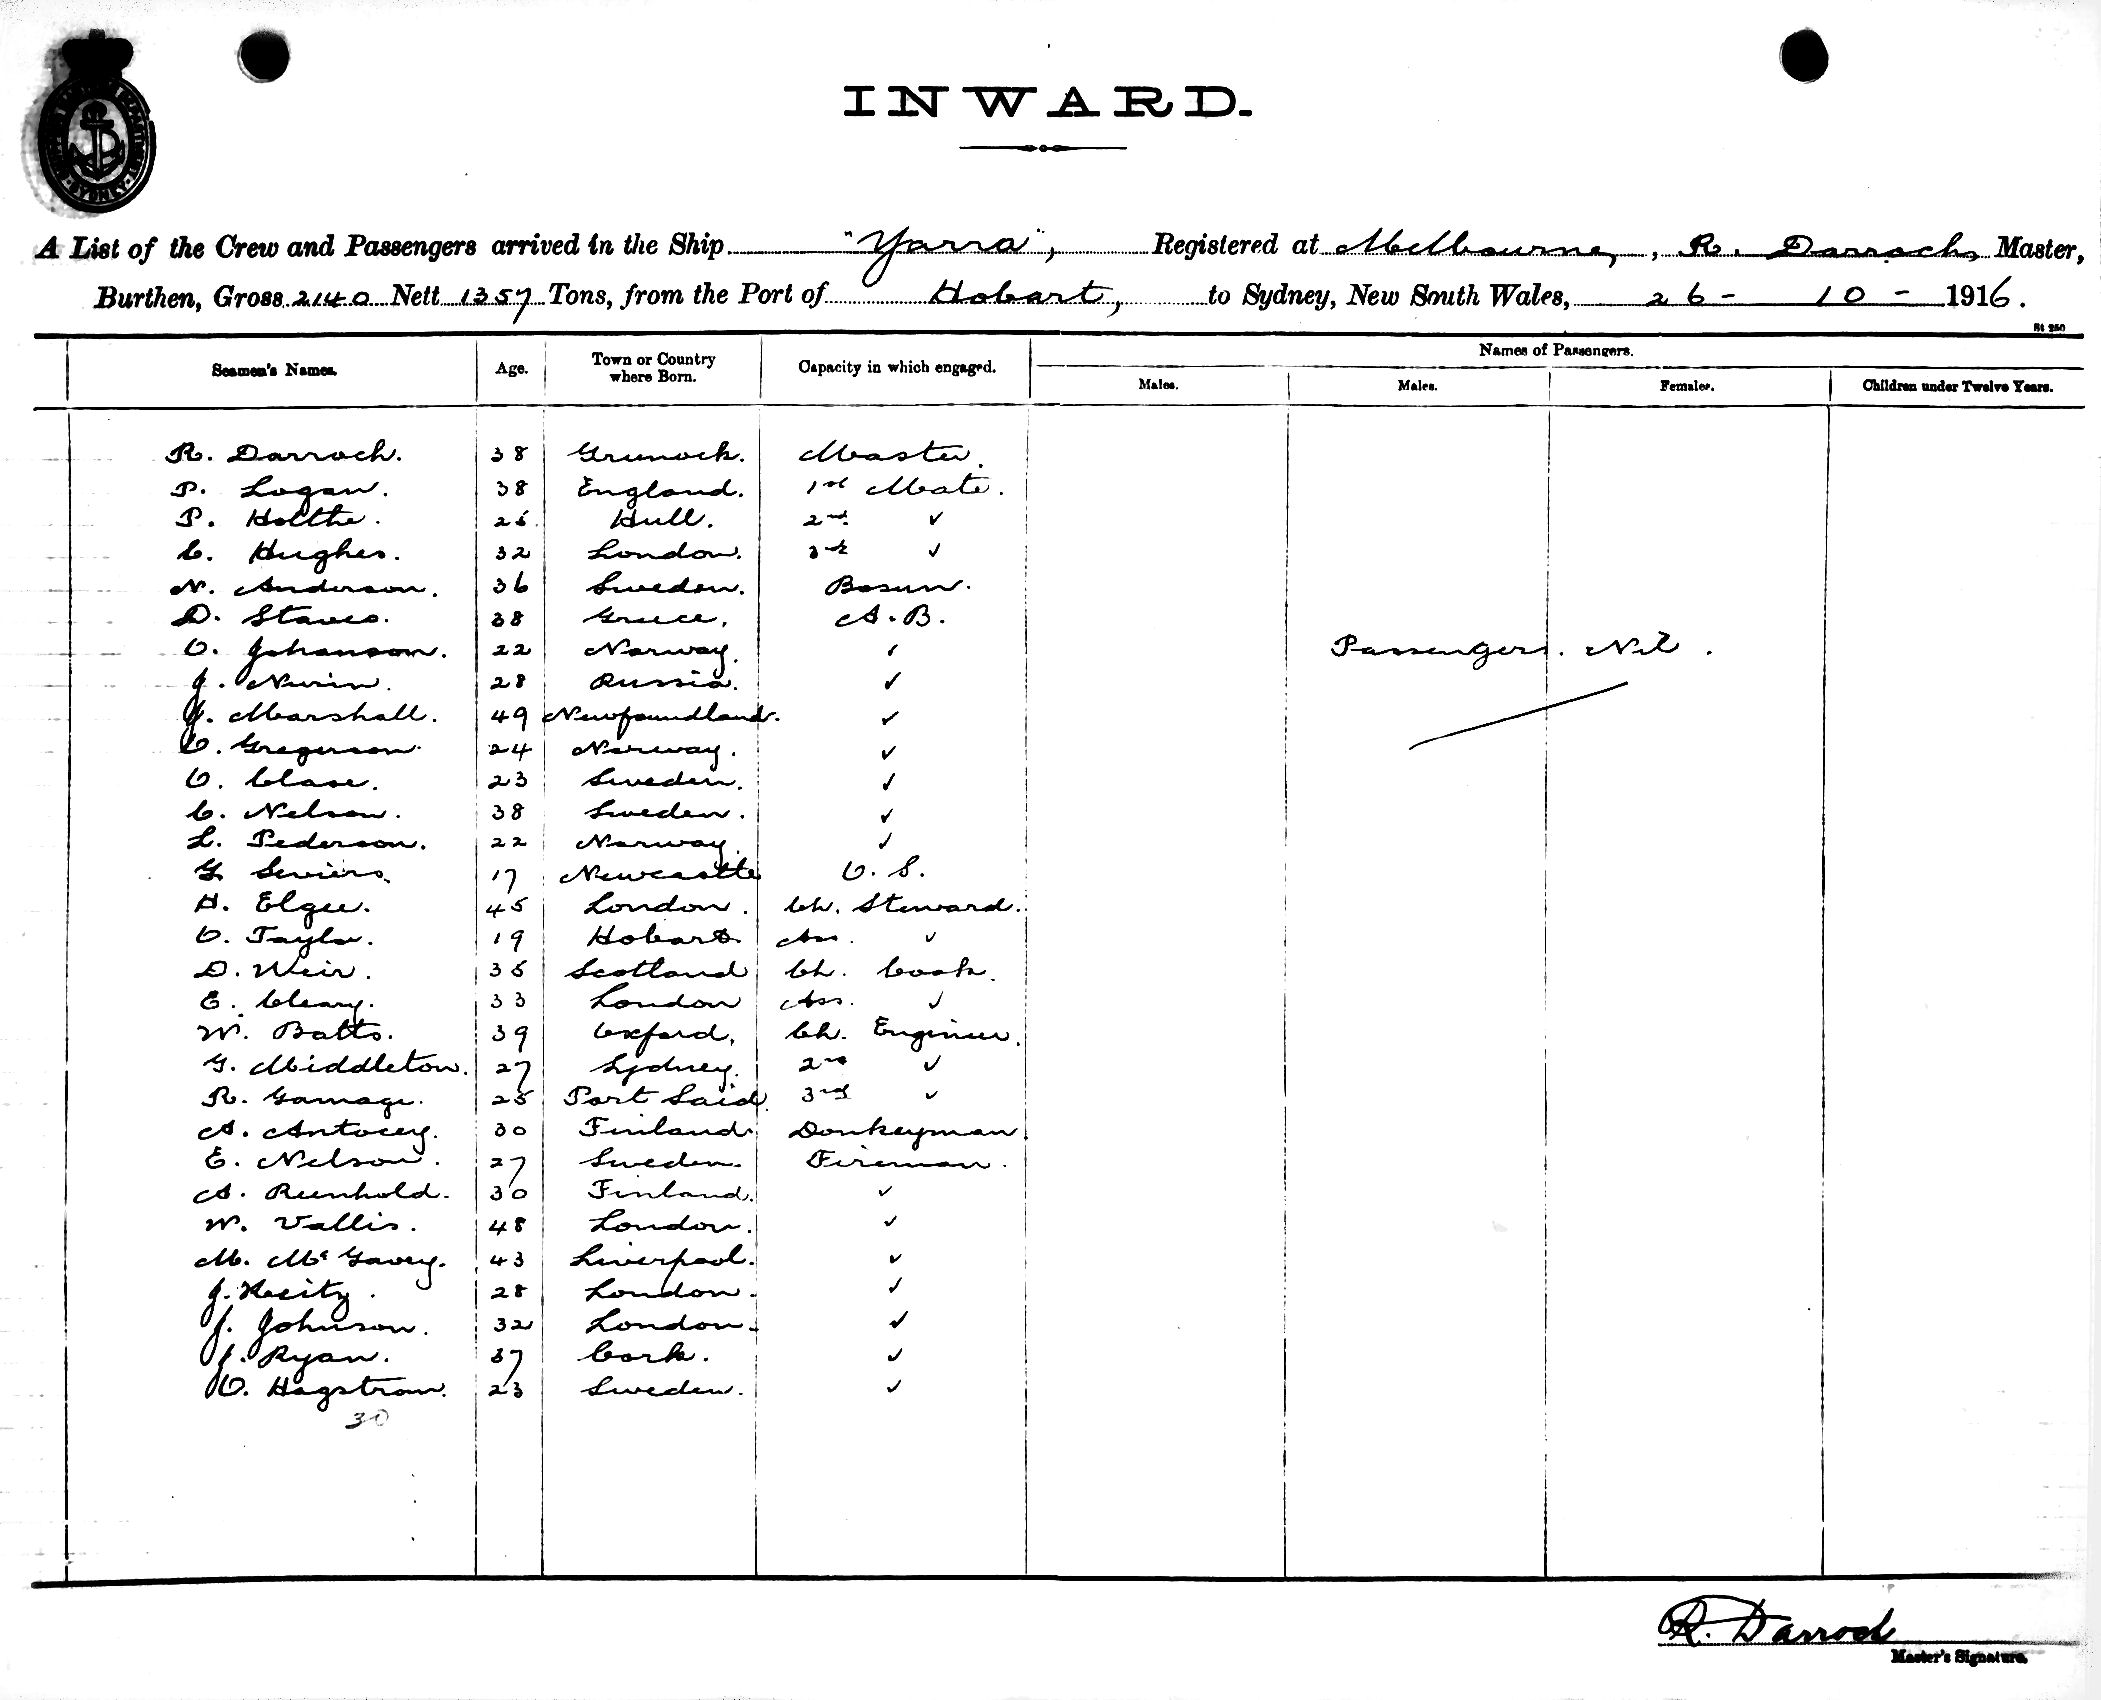 INWARD.
A List of the Crew and Passengers arrived in the Ship "Yarra", Registered at Melbourne, R. Darroch, Master,
Burthen, Gross 2140 Nett 1357 Tons, from the Port of Hobart, to Sydney, New South Wales, 26 - 10 - 1916.
St 250
Seamen's Names. Age. Town or Country where Born. Capacity in which engaged. Names of Passengers.
Males. Males. Females. Children under Twelve Years.
R. Darroch. 38 Greenock. Master.
P. Logan. 38 England. 1st Mate.
P. Holthe. 26 Hull. 2nd ✓
C. Hughes. 32 London. 3rd ✓
N. Anderson. 36 Sweden. Bosun.
D. Staveo. 38 Greece. A.B.
O. Johanson. 22 Norway. ✓
Passengers. Nil.
J. Nurin. 28 Russia. ✓
J. Marshall. 49 Newfoundland. ✓
O. Gregerson. 24 Norway. ✓
O. Clase. 23 Sweden. ✓
C. Nelson. 38 Sweden. ✓
L. Pederson. 22 Norway. ✓
G. 17 Newcastle O.S.
H. Elgee. 45 London. Ch. Steward.
O. Taylor. 19 Hobart. Ass. ✓
D. Weir. 35 Scotland Ch. Cook.
E. Cleary. 33 London Ass. ✓
W. Batts. 39 Oxford. Ch. Engineer.
G. Middleton. 27 Sydney. 2nd ✓
R. Gamage. 25 Port Said. 3rd ✓
A. 30 Finland. Donkeyman.
E. Nelson. 27 Sweden. Fireman.
A. Reinhold. 30 Finland. ✓
W. Vallis. 48 London. ✓
M. McGavey. 43 Liverpool. ✓
J. 28 London. ✓
J. Johnson. 32 London. ✓
J. Ryan. 37 Cork. ✓
O. Hagstrom. 23 Sweden. ✓
30
R. Darroch
Master's Signature.